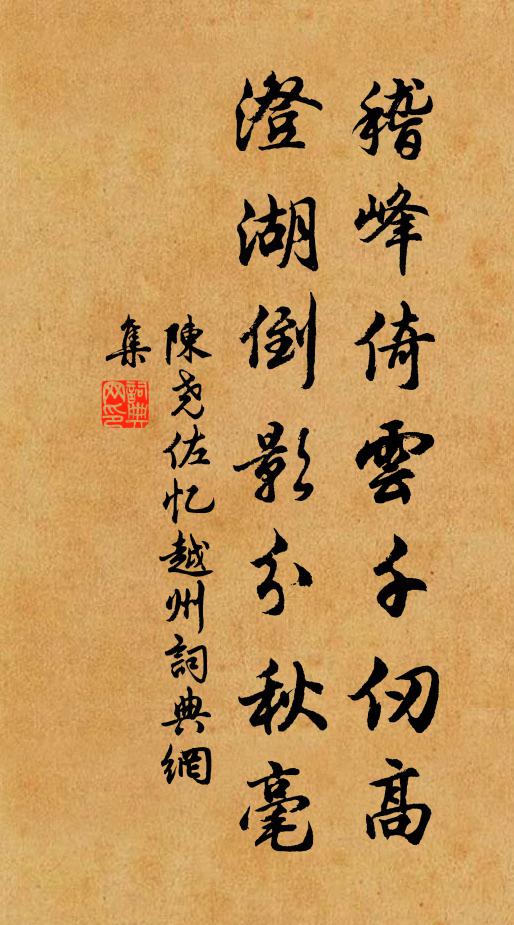 稽峰倚雲千仞高
澄湖倒影分秋毫
陳尧佐忆越州詞典網
集
詞典网印